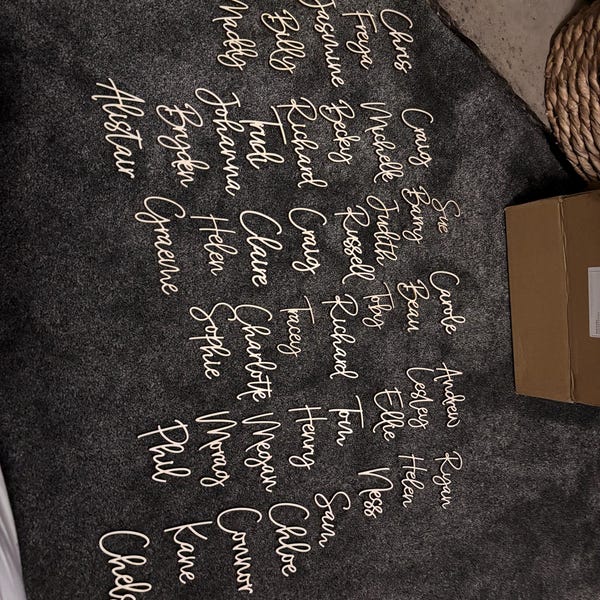 Sue Carole Andrew Ryan
Chris Craig Barry Beau Lesley Helen
Freya Michelle Judith Toby Ellie Ness
Jasmine Becky Russell Richard Tom Sam
Billy Richard Craig Tracey Henry Chloe
Maddy Trudi Claire Charlotte Megan Connor
Johanna Helen Sophie Morag Kane
Bryden Graeme Phil Chels
Alistair